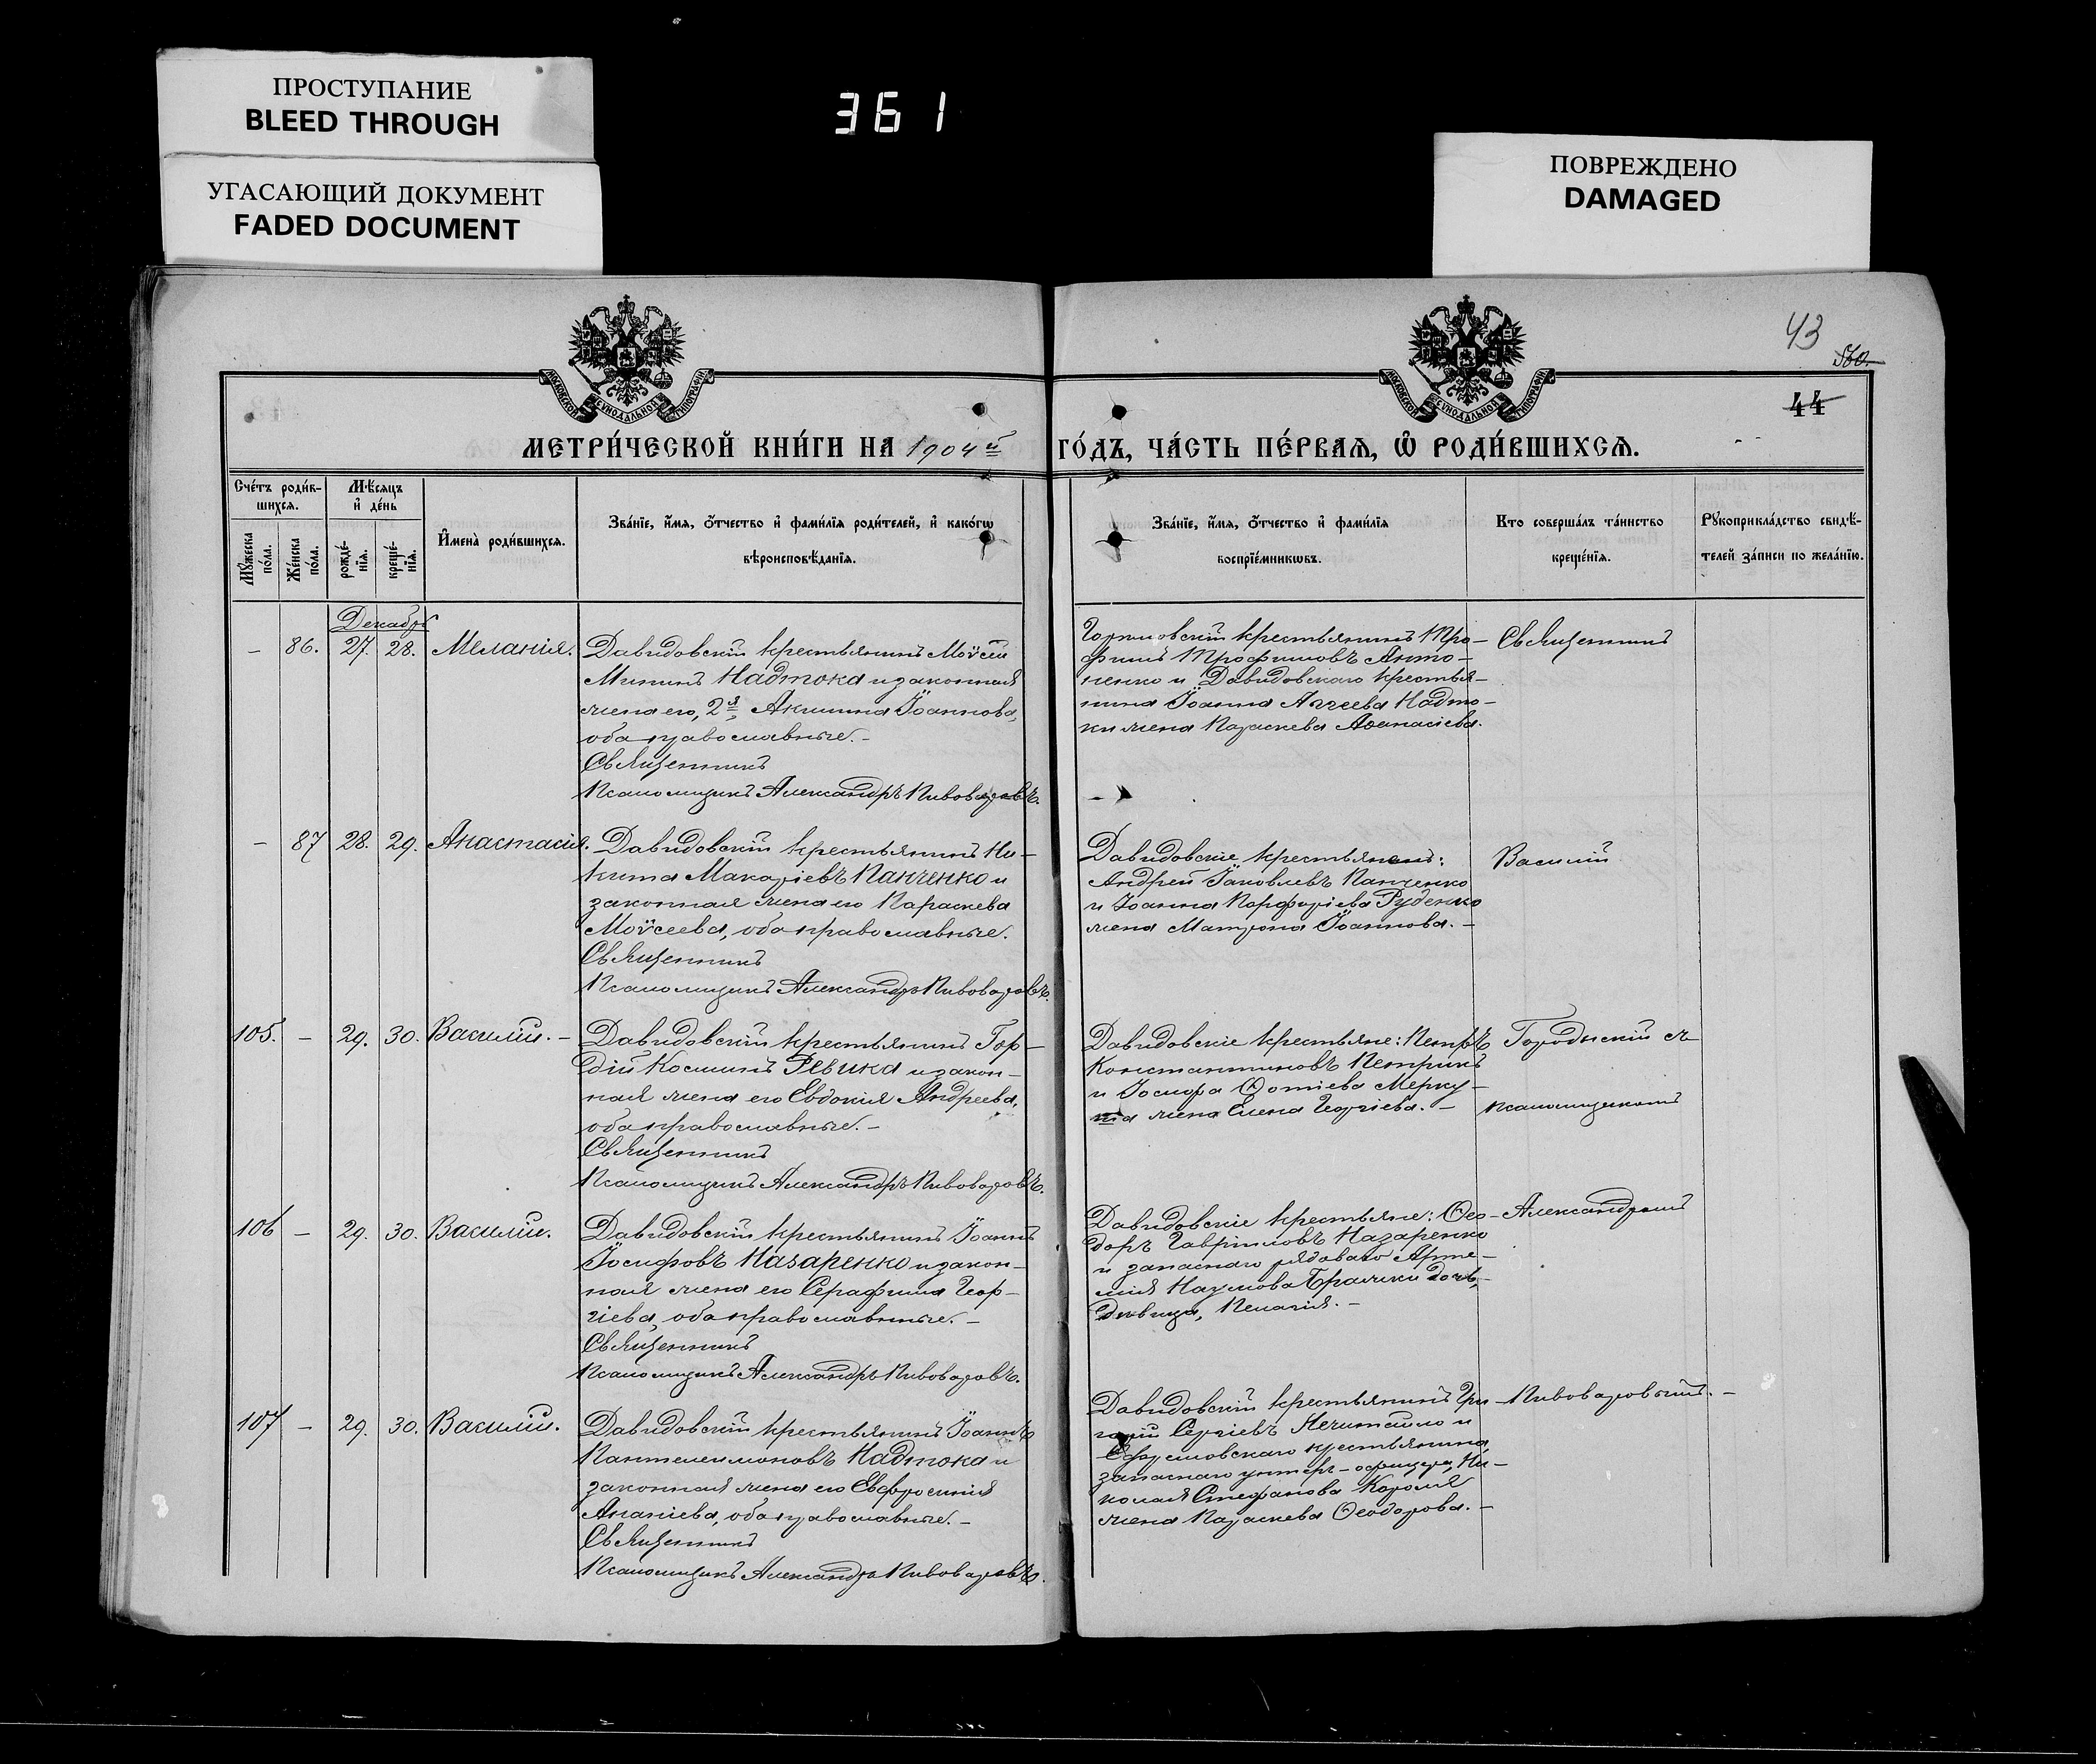 ПРОСТУПАНИЕ
BLEED THROUGH
УГАСАЮЩИЙ ДОКУМЕНТ
FADED DOCUMENT
361
ПОВРЕЖДЕНО
DAMAGED
43
560.
44
МОСКОВСКОЙ СѴНОДАЛЬНОЙ ТИПОГРАФІИ
МОСКОВСКОЙ СѴНОДАЛЬНОЙ ТИПОГРАФІИ
МЕТРИ́ЧЕСКОЙ КНИ́ГИ НА 1904й ГО́ДЪ, ЧА́СТЬ ПЕ́РВАЯ, Ѽ РОДИ́ВШИХСЯ.
Сче́тъ роди́в-
шихся.
Мѣ́сяцъ
и҆ де́нь
Мꙋ́жеска
по́ла.
Же́нска
по́ла.
рожде́-
нїя.
креще́-
нїя.
И҆мена̀ роди́вшихся.
Зва́нїе, и҆́мя, ѻ҆́тчество и҆ фами́лїя роди́телей, и҆ како́гѡ
вѣроисповѣ́данїя.
Зва́нїе, и҆́мя, ѻ҆́тчество и҆ фами́лїя
воспрїе́мникѡвъ.
Кто соверша́лъ та́инство
креще́нїя.
Рꙋкоприкла́дство свидѣ́-
телей за́писи по жела́нїю.
Декабрь
– 86. 27. 28. Меланія.
Давидовскій крестьянинъ Моѵсей
Мининъ Надтока и законная
жена его, 2я, Акилина Іоаннова,
оба православные. –
Священникъ
Псаломщикъ Александръ Пивоваровъ.
крестьянинъ Тро-
фимъ Трофимовъ Анто-
ненко и Давидовскаго крестья-
нина Іоанна Аггеева Надто-
ки жена Параскева Аѳанасіева.
Священникъ
– 87 28. 29. Анастасія.
Давидовскій крестьянинъ Ни-
кита Макаріевъ Панченко и
законная жена его Параскева
Моѵсеева, оба православные.
Священникъ
Псаломщикъ Александръ Пивоваровъ.
Давидовскіе крестьяне:
Андрей Іаковлевъ Панченко
и Іоанна Порфиріева Руденко
жена Матрона Іоаннова. –
Василій
105. – 29. 30. Василій. –
Давидовскій крестьянинъ Гор-
дій Косминъ Ревика и закон-
ная жена его Евдокія Андреева,
оба православные. –
Священникъ
Псаломщикъ Александръ Пивоваровъ.
Давидовскіе крестьяне: Петръ
Константиновъ Петрикъ
и Іосифа Фотіева Мерку-
жена Елена Георгіева. –
Городыскій съ
псаломщикомъ
106 – 29. 30. Василій.
Давидовскій крестьянинъ Іоаннъ
Іосифовъ Назаренко и закон-
ная жена его Серафима Геор-
гіева, оба православные. –
Священникъ
Псаломщикъ Александръ Пивоваровъ.
Давидовскіе крестьяне: Ѳео-
доръ Гавріиловъ Назаренко
и запаснаго рядоваго Арте-
мія Наумова Бражки дочь,
дѣвица, Пелагія. –
Александромъ
107 – 29. 30. Василій.
Давидовскій крестьянинъ Іоаннъ
Пантелеимоновъ Надтока и
законная жена его Евфросинія
Ананіева, оба православные. –
Священникъ
Псаломщикъ Александръ Пивоваровъ.
Давидовскій крестьянинъ Гри-
горій Сергіевъ Нечитайло и
крестьянина,
запаснаго унтеръ-офицера, Ни-
колая Стефанова Короля
жена Параскева Ѳеодорова. –
Пивоваровымъ. –